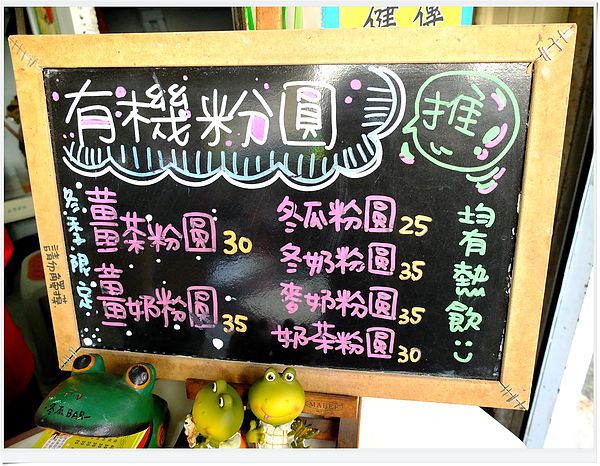 健康
有機粉圓
推
冬季限定
薑茶粉圓 30
薑奶粉圓 35
冬瓜粉圓 25
冬奶粉圓 35
麥奶粉圓 35
奶茶粉圓 30
均有熱飲
請勿觸摸
冬瓜BAR